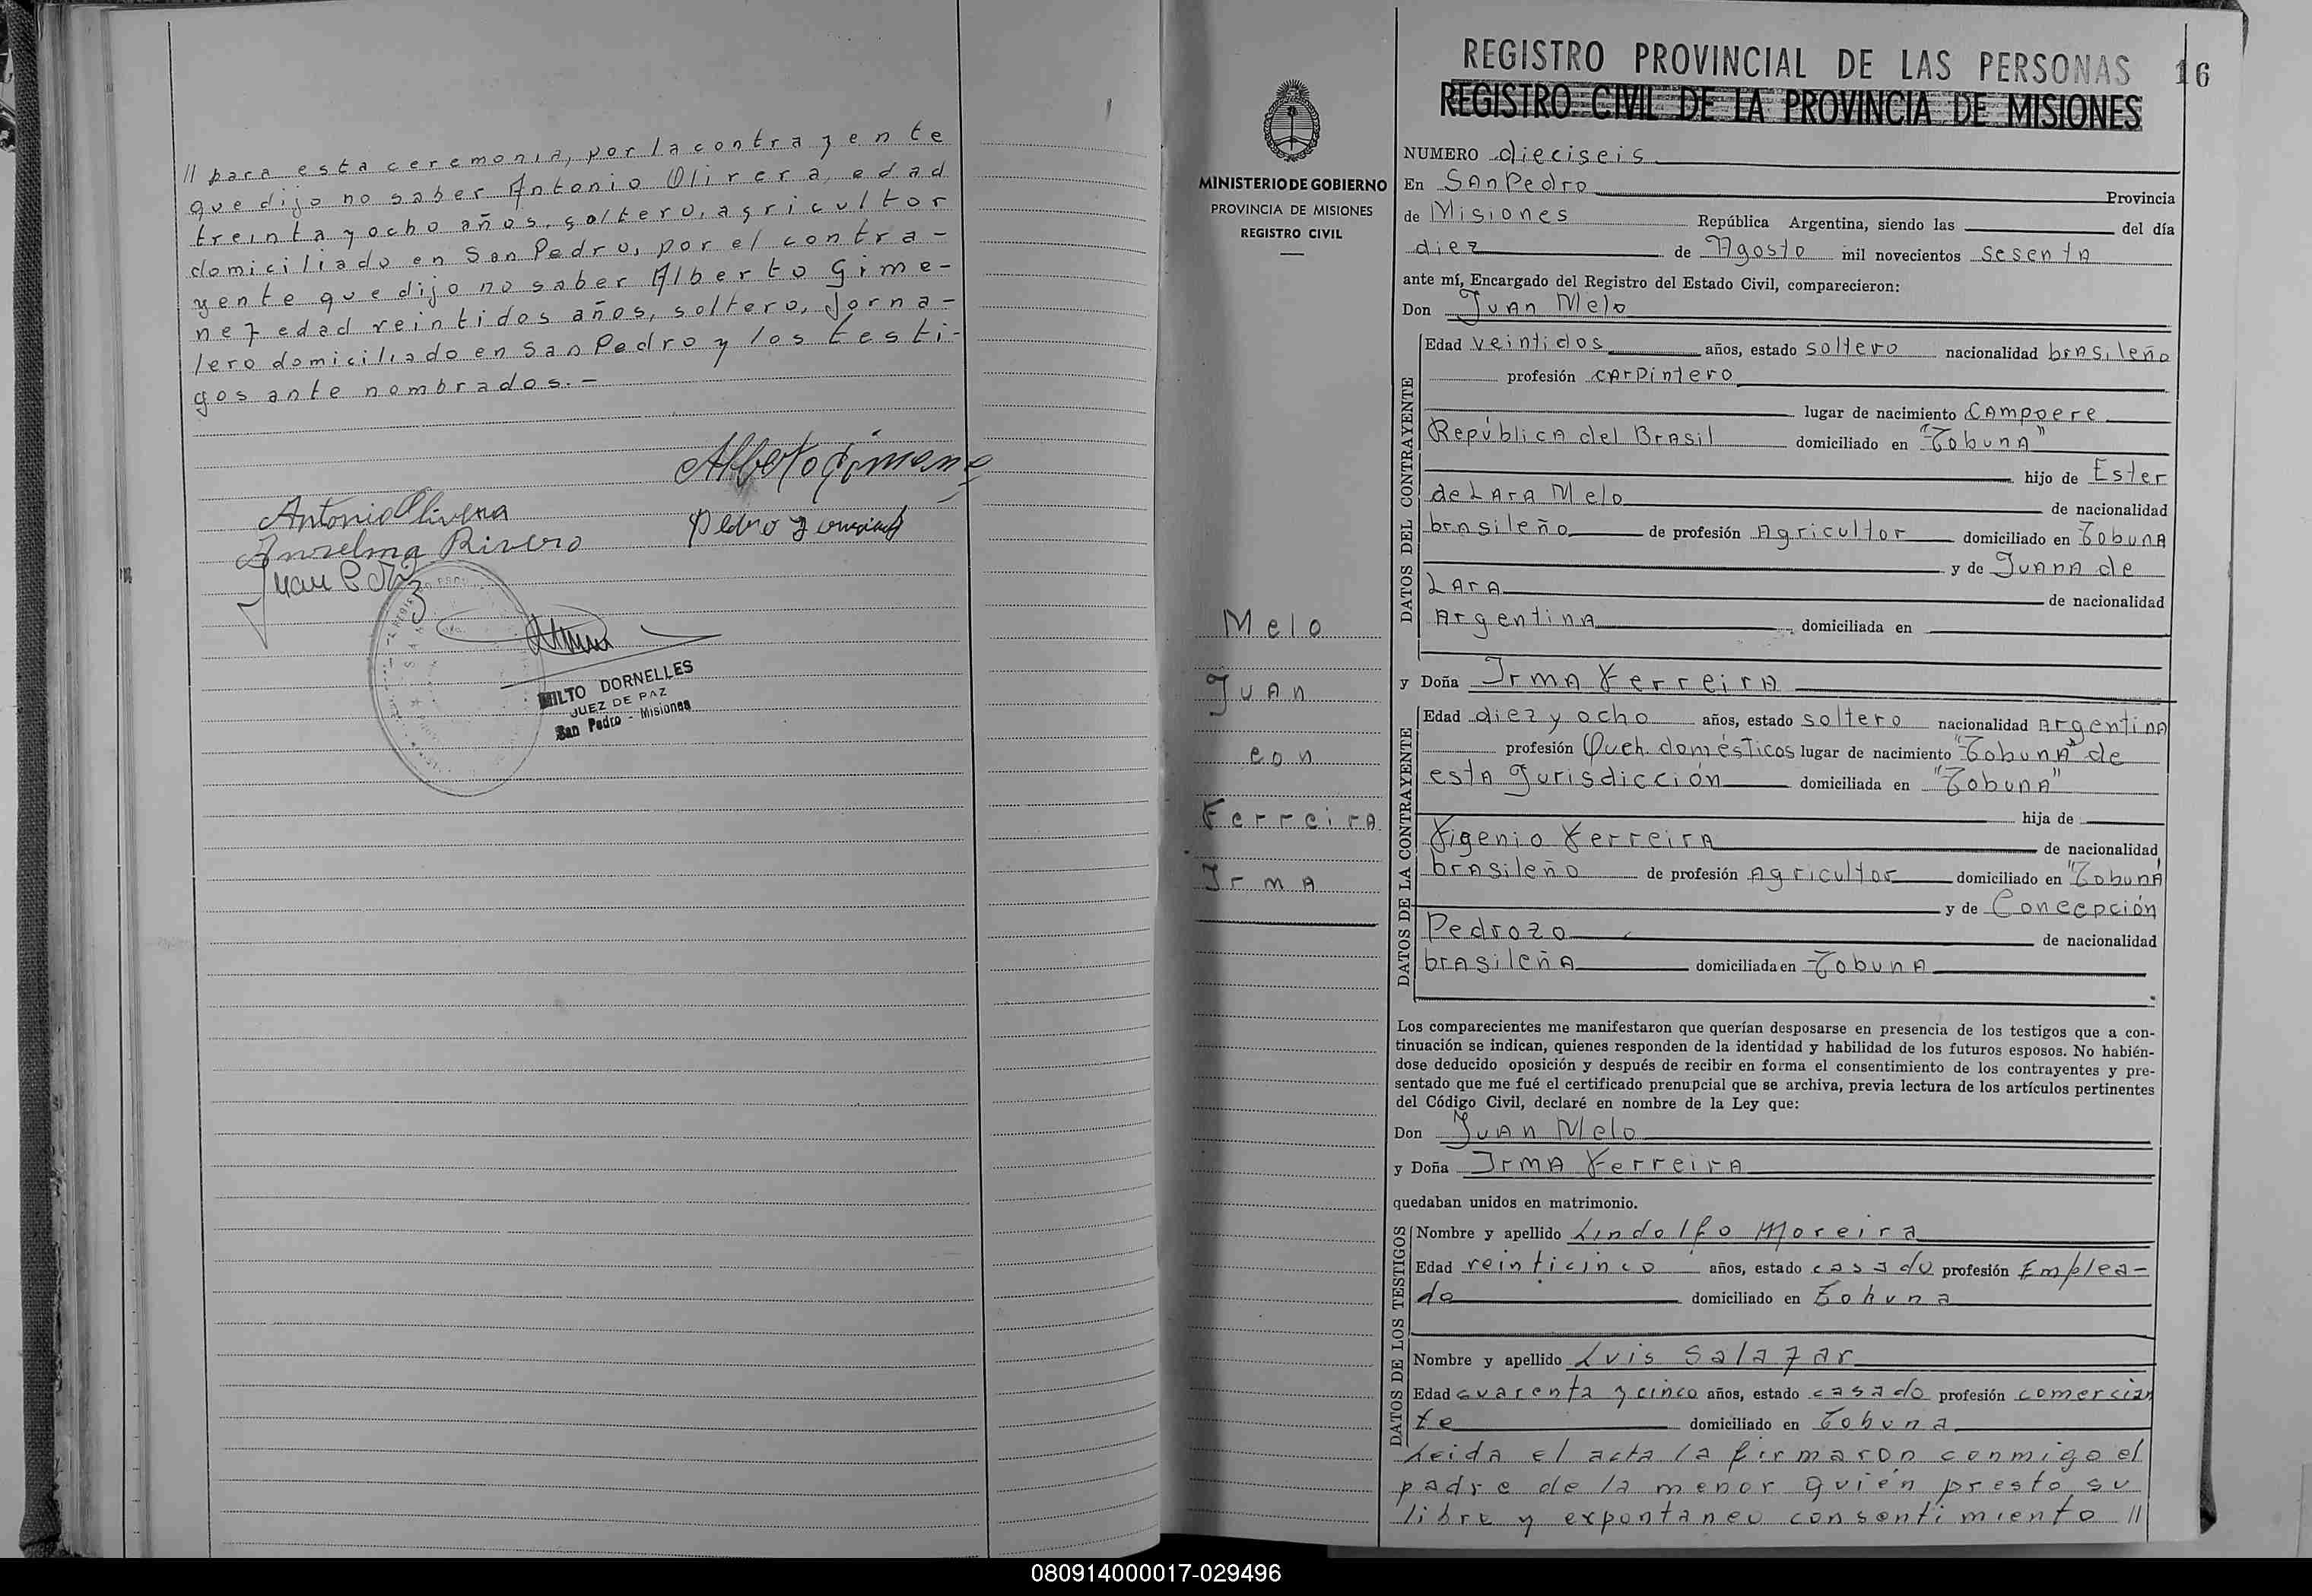 // para esta ceremonia, por la contrayente
que dijo no saber Antonio Olivera, edad
treinta y ocho años, soltero, agricultor
domiciliado en San Pedro, por el contra-
yente que dijo no saber Alberto Gime-
nez edad veintidos años, soltero, Jorna-
lero domiciliado en San Pedro y los testi-
gos ante nombrados.-
Antonio Olivera
Anselma Rivero
Pedro
MILTO DORNELLES
JUEZ DE PAZ
San Pedro - Misiones
MINISTERIO DE GOBIERNO
PROVINCIA DE MISIONES
REGISTRO CIVIL
Melo
Juan
con
Ferreira
Irma
REGISTRO PROVINCIAL DE LAS PERSONAS 16
REGISTRO CIVIL DE LA PROVINCIA DE MISIONES
NUMERO dieciseis
En San Pedro Provincia
de Misiones República Argentina, siendo las del día
diez de Agosto mil novecientos sesenta
ante mí, Encargado del Registro del Estado Civil, comparecieron:
Don Juan Melo
DATOS DEL CONTRAYENTE
Edad veintidos años, estado soltero nacionalidad brasileño
profesión carpintero
lugar de nacimiento Campoere
República del Brasil domiciliado en "Tobuna"
hijo de Ester
de Lara Melo de nacionalidad
brasileño de profesión Agricultor domiciliado en Tobuna
y de Juana de
Lara de nacionalidad
Argentina domiciliada en
y Doña Irma Ferreira
DATOS DE LA CONTRAYENTE
Edad diez y ocho años, estado soltero nacionalidad Argentina
profesión Queh. domésticos lugar de nacimiento "Tobuna" de
esta Jurisdicción domiciliada en "Tobuna"
hija de
Figenio Ferreira de nacionalidad
brasileño de profesión Agricultor domiciliado en "Tobuna"
y de Concepción
Pedrozo de nacionalidad
brasileña domiciliada en Tobuna
Los comparecientes me manifestaron que querían desposarse en presencia de los testigos que a con-
tinuación se indican, quienes responden de la identidad y habilidad de los futuros esposos. No habién-
dose deducido oposición y después de recibir en forma el consentimiento de los contrayentes y pre-
sentado que me fué el certificado prenupcial que se archiva, previa lectura de los artículos pertinentes
del Código Civil, declaré en nombre de la Ley que:
Don Juan Melo
y Doña Irma Ferreira
quedaban unidos en matrimonio.
DATOS DE LOS TESTIGOS
Nombre y apellido Lindolfo Moreira
Edad veinticinco años, estado casado profesión Emplea-
do domiciliado en Tobuna
Nombre y apellido Luis Salazar
Edad cuarenta y cinco años, estado casado profesión comercian
te domiciliado en Tobuna
Leida el acta la firmaron conmigo el
padre de la menor quién presto su
libre y expontaneo consentimiento //
080914000017-029496